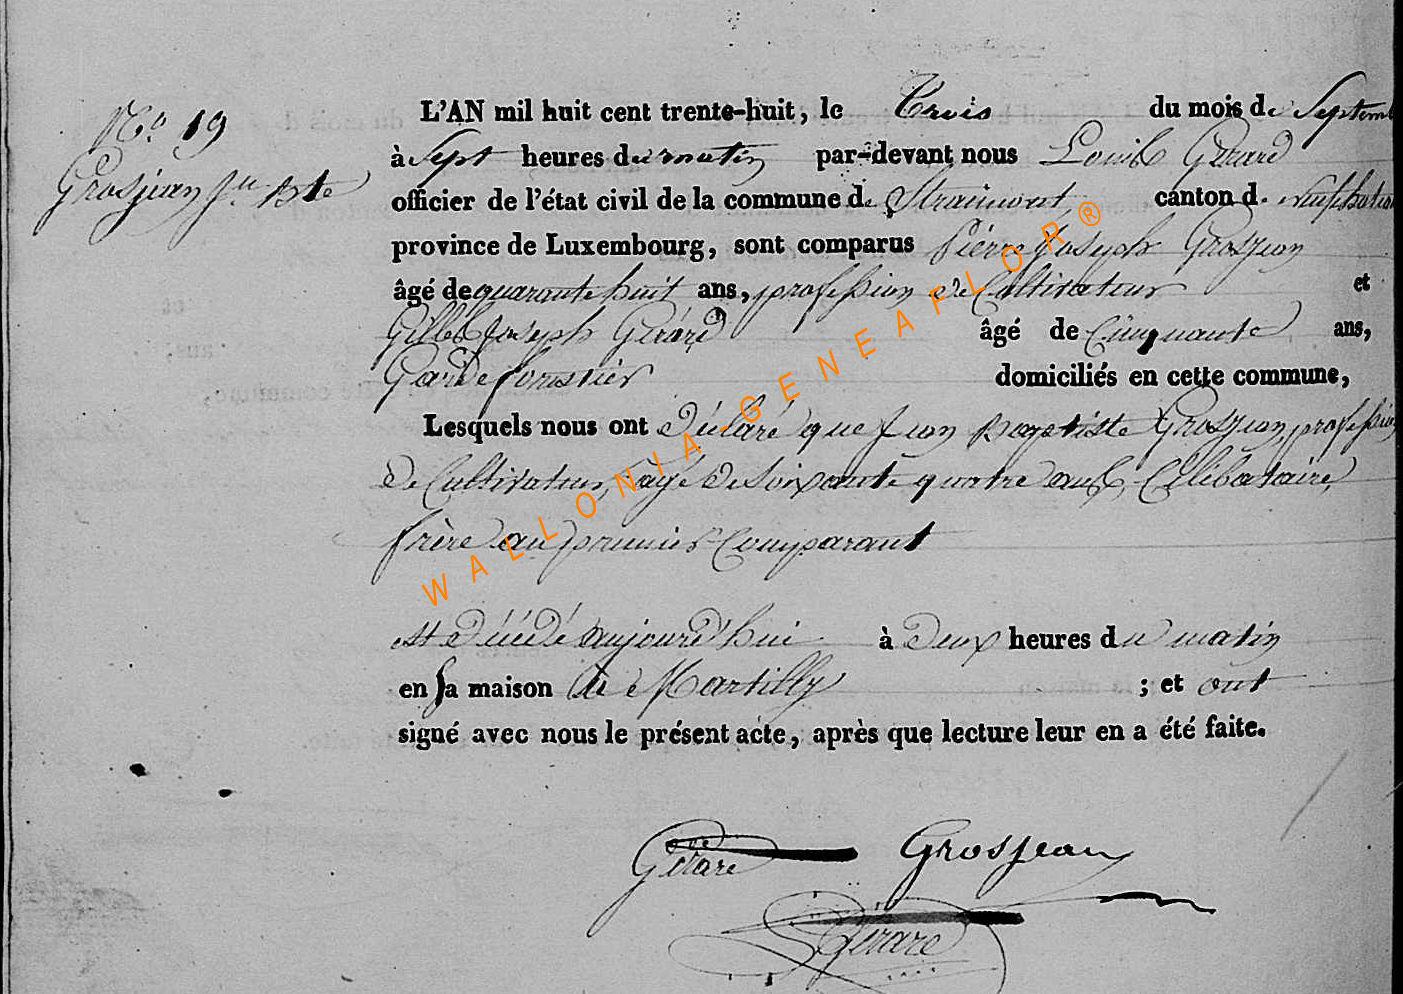 No 19
Grosjean Jn Bte
L'AN mil huit cent trente-huit, le Trois du mois de Septemb
à Sept heures du matin par-devant nous Louis Gérard
officier de l'état civil de la commune de Straimont canton de Neufchateau
province de Luxembourg, sont comparus Pierre Joseph Grosjean
âgé de quarante huit ans, profession de Cultivateur et
Gilles Joseph Gérard âgé de Cinquante ans,
Garde forestier domiciliés en cette commune,
Lesquels nous ont déclaré que Jean Baptiste Grosjean, profession
de Cultivateur, âgé de soixante quatre ans, Célibataire,
frère au premier Comparant
est décédé aujourd'hui à deux heures du matin
en sa maison de Martilly ; et ont
signé avec nous le présent acte, après que lecture leur en a été faite.
Gérard Grosjean
Gérard
WALLONIA-GENEAFLOR®